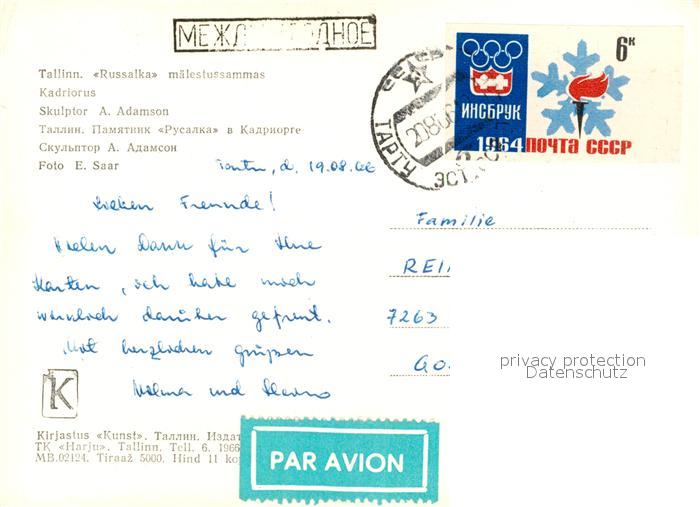 МЕЖДУНАРОДНОЕ
Tallinn. «Russalka» mälestussammas
Kadriorus
Skulptor A. Adamson
Таллин. Памятник «Русалка» в Кадриорге
Скульптор А. Адамсон
Foto E. Saar
6к
ИНСБРУК
1964 ПОЧТА СССР
ТАРТУ
Tartu, d. 19.08.66
Lieben Freunde!
Vielen Dank für Ihre
Karten, ich habe mich
wirklich darüber gefreut.
Mit herzlichen grüßen
und
Familie
REI
7263
GO
privacy protection
Datenschutz
K
Kirjastus «Kunst». Таллин. Издат
TK «Harju». Tallinn. Tell. 6. 1966
MB.02124. Tiraaž 5000. Hind 11 kop
PAR AVION